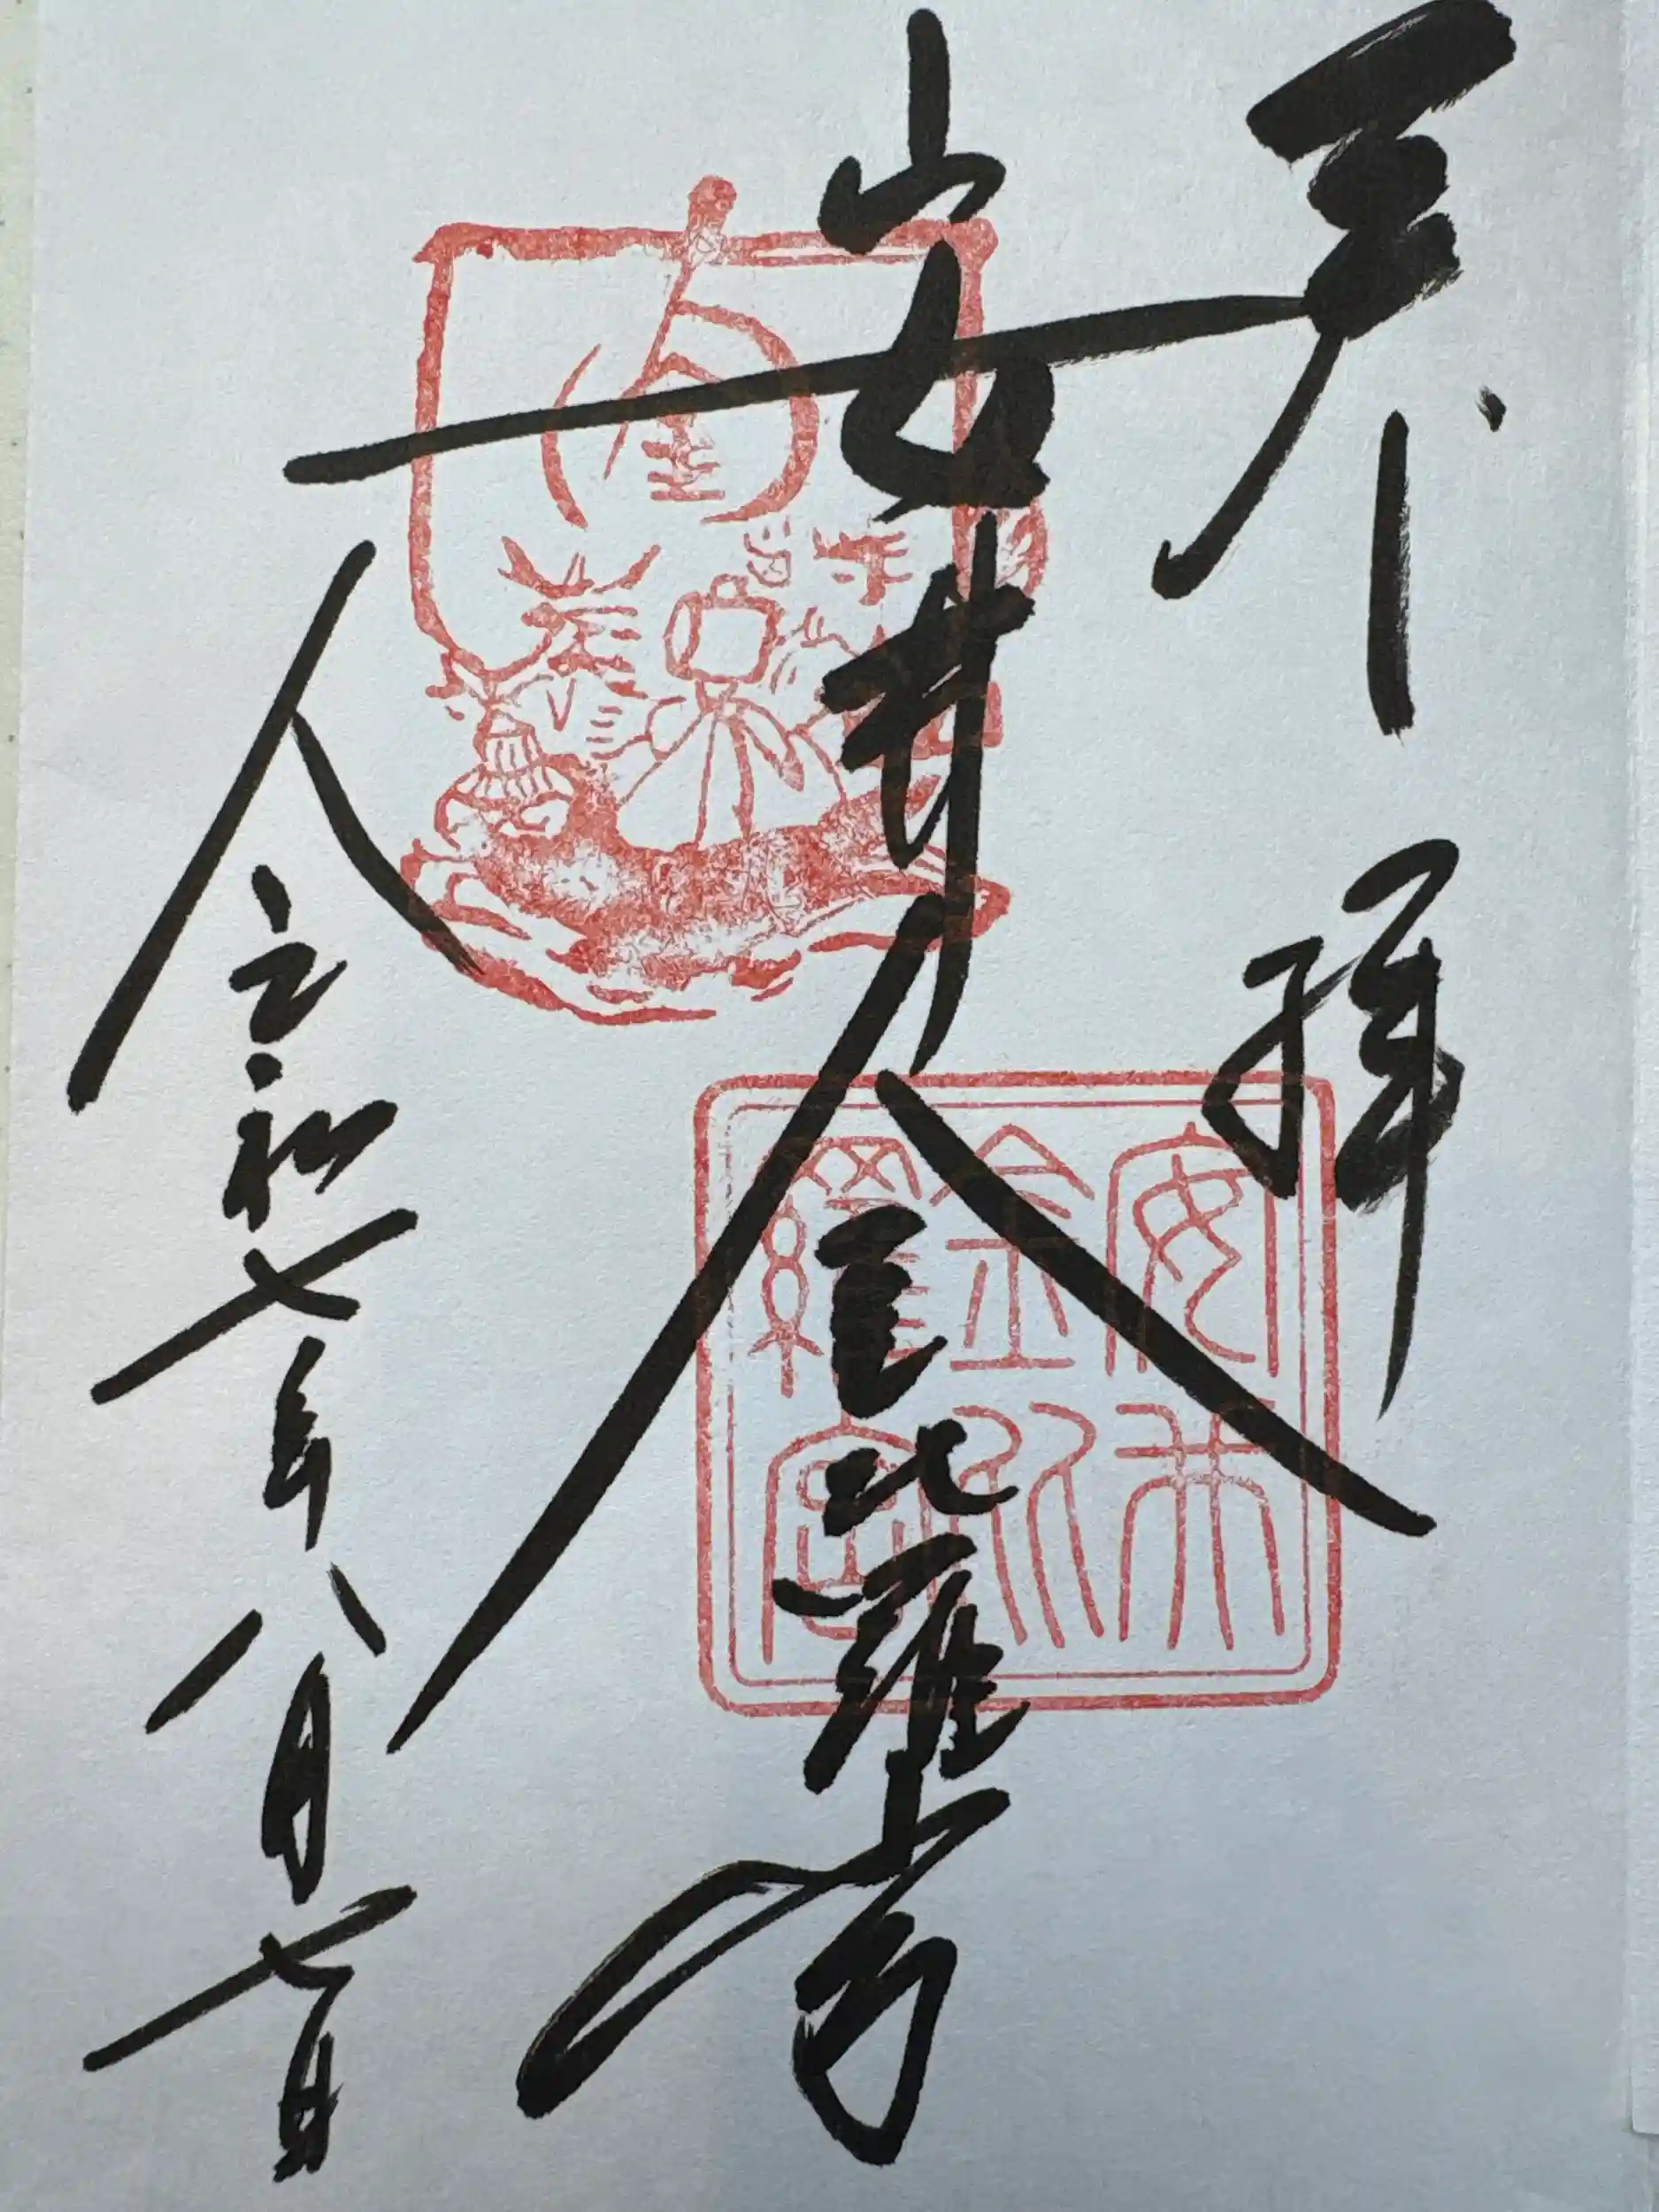 奉拝
安井金比羅宮
令和七年八月七日
安井
金比
羅宮